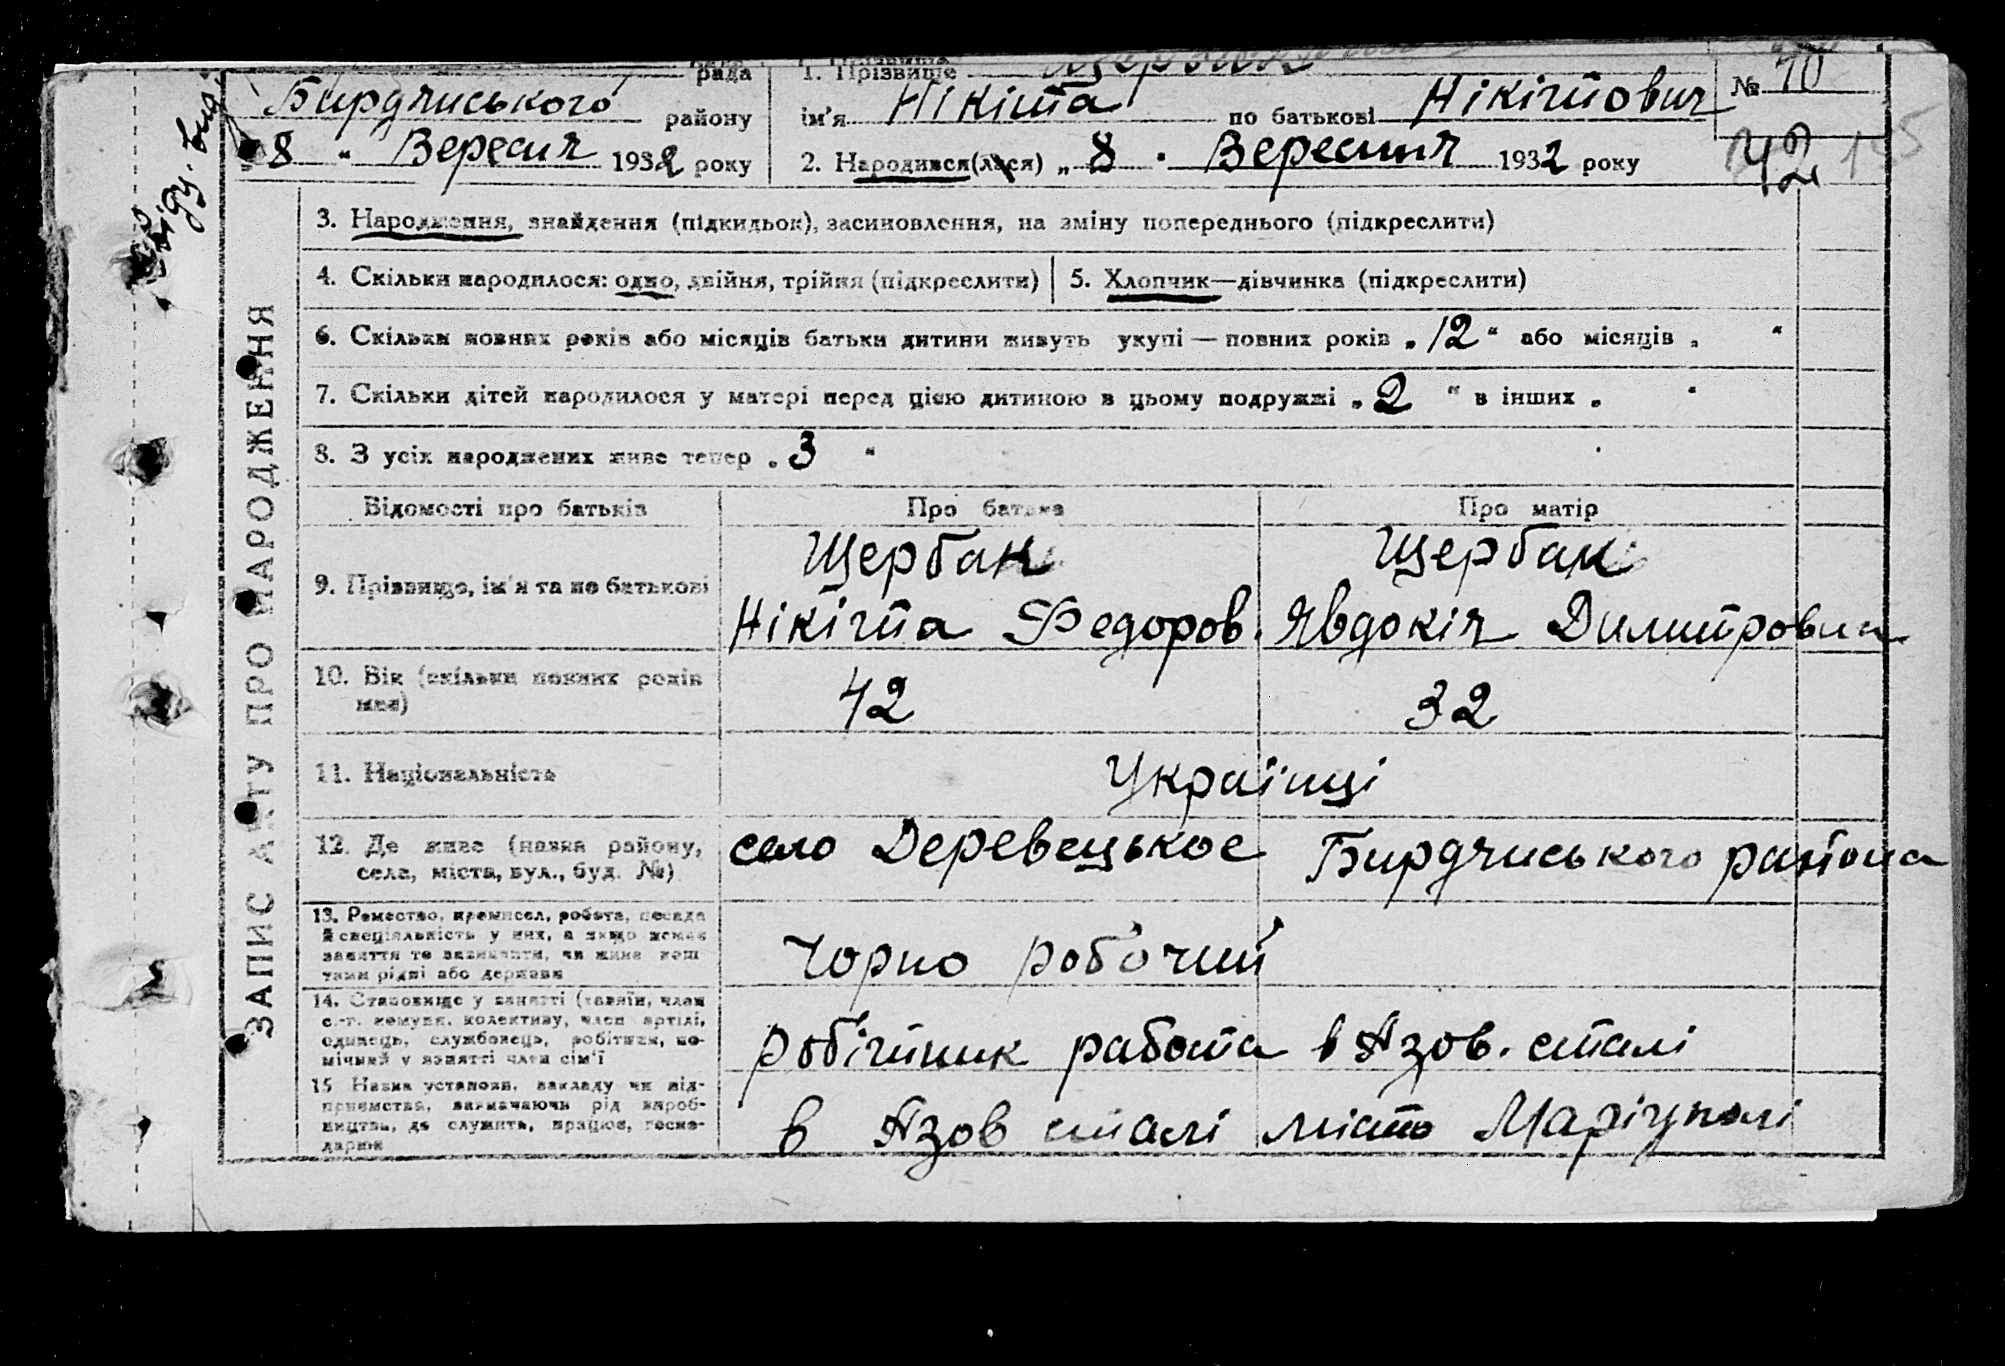 рада
1. Прізвище
№ 40
Бирдянського району
ім'я Нікіта по батькові Нікітович
42
„8“ Вересня 1932 року
2. Народився(лася) „8“ Вересня 1932 року
ЗАПИС АКТУ ПРО НАРОДЖЕННЯ
3. Народження, знайдення (підкидьок), засиновлення, на зміну попереднього (підкреслити)
4. Скільки народилося: одно, двійня, трійня (підкреслити)
5. Хлопчик—дівчинка (підкреслити)
6. Скільки повних років або місяців батьки дитини живуть укупі — повних років „12“ або місяців „ “
7. Скільки дітей народилося у матері перед цією дитиною в цьому подружжі „2“ в інших „ “
8. З усіх народжених живе тепер „3“
Відомості про батьків
Про батька
Про матір
9. Прізвище, ім'я та по батькові
Щербак
Нікіта Федоров.
Щербак
Явдокія Димитровна
10. Вік (скільки повних років
має)
42
32
11. Національність
Українці
12. Де живе (назва району,
села, міста, вул., буд. №)
село Деревецькое Бирдянського района
13. Ремество, промисел, робота, посада
й спеціяльність у них, а якщо немає
заняття то зазначити, чи живе кош
тами рідні або держави
Чорно робочий
14. Становище у занятті (хазяїн, член
с.-г. комуни, колективу, член артілі,
одинець, службовець, робітник, по-
мічний у занятті член сім'ї
робітник работа в Азов. сталі
15 Назва установи, закладу чи під-
приємства, зазначаючи рід вироб-
ництва, де служить, працює, госпо-
дарює
в Азов сталі місто Маріуполі